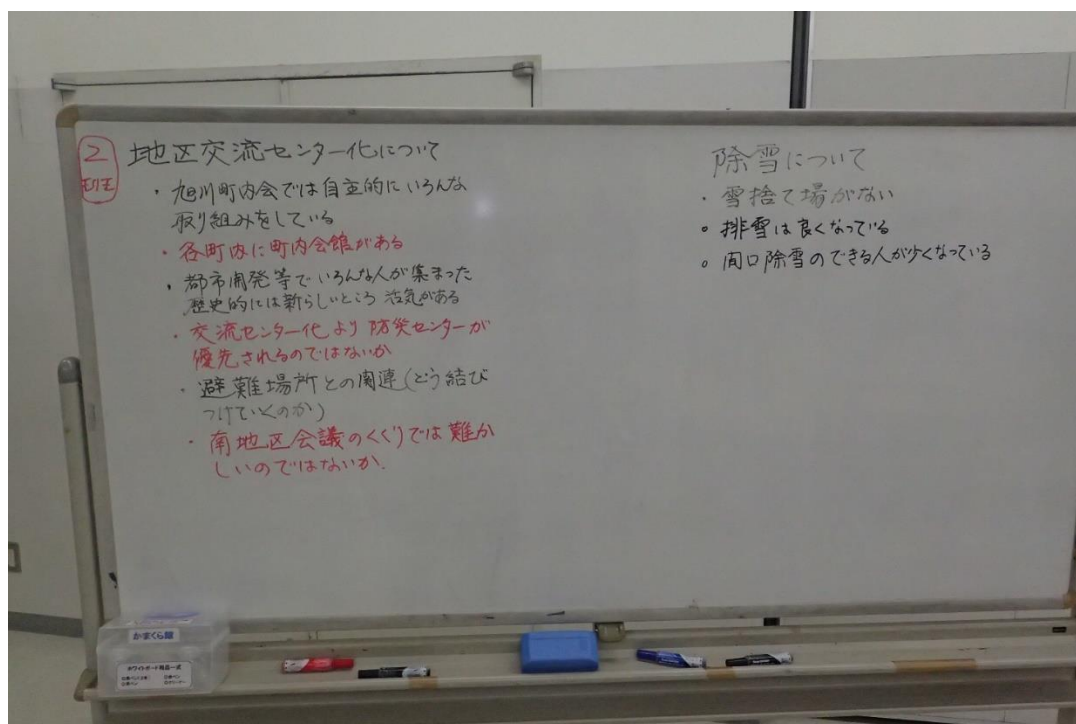 2班
地区交流センター化について
・旭川町内会では自主的にいろんな
取り組みをしている
・各町内に町内会館がある
・都市開発等でいろんな人が集まった
歴史的には新らしいところ 活気がある
・交流センター化より防災センターが
優先されるのではないか
・避難場所との関連(どう結び
つけていくのか)
・南地区会議のくくりでは難か
しいのではないか.
除雪について
・雪捨て場がない
○排雪は良くなっている
○間口除雪のできる人が少くなっている
かまくら
ホワイトボード用品一式